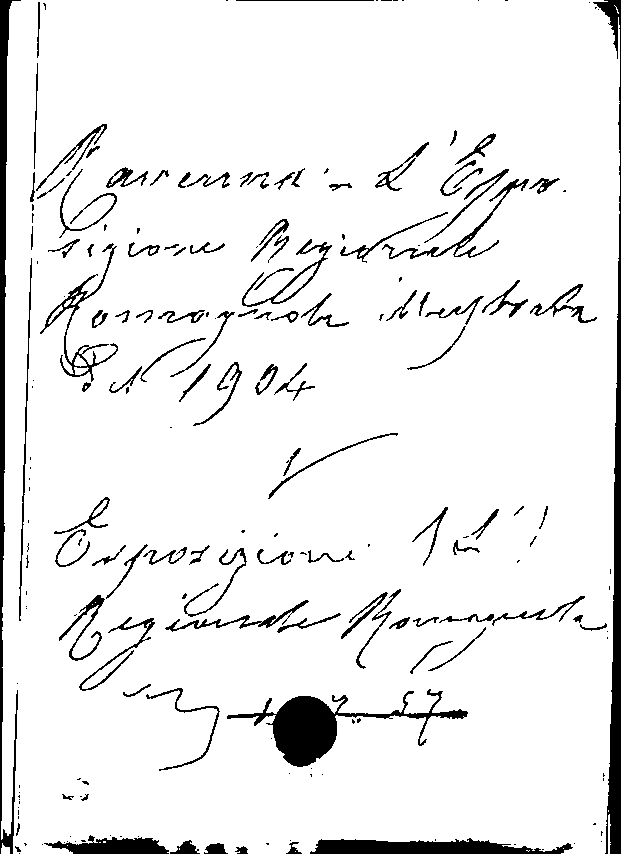 Ravenna - L'Espo
sizione Regionale
Romagnola illustrata
1904
Esposizione (L')
Regionale Romagnola